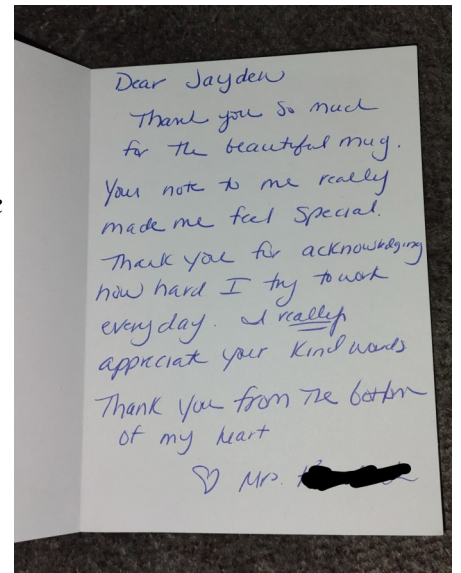 Dear Jayden
Thank you so much
for the beautiful mug.
Your note to me really
made me feel special.
Thank you for acknowledging
how hard I try to work
every day. I really
appreciate your kind words
Thank you from the bottom
of my heart
♡ Mrs.